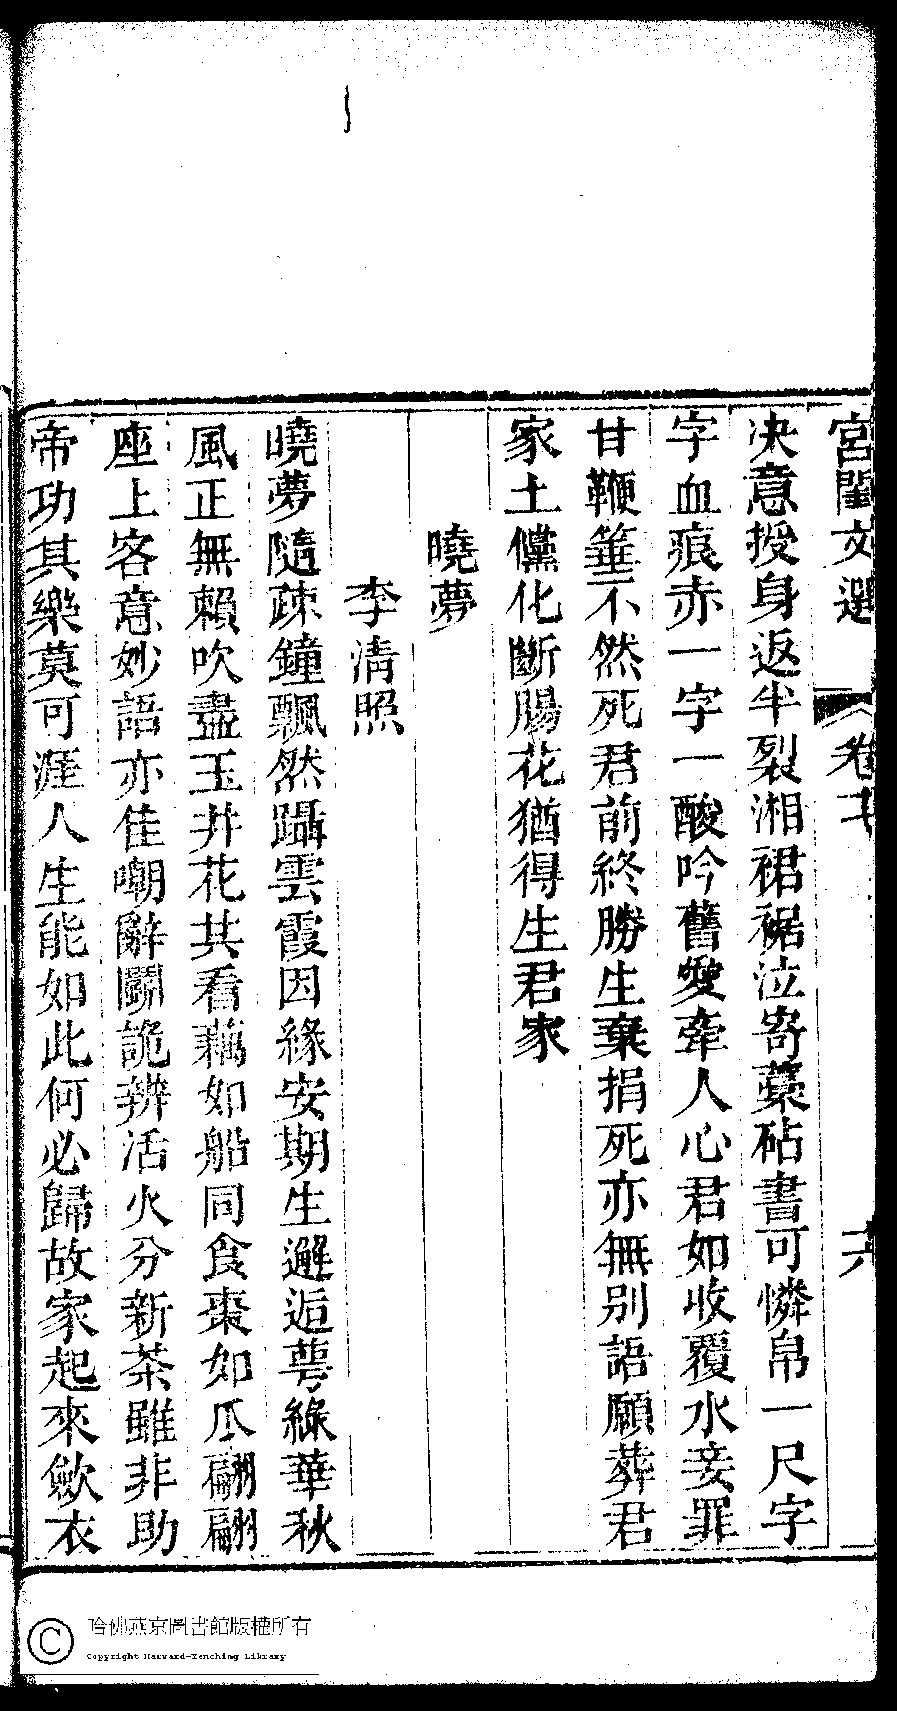 宮閨文選
卷十
六
决意授身返半裂湘裙裾泣寄藁砧書可憐帛一尺字
字血痕赤一字一酸吟舊愛牽人心君如收覆水妾罪
甘鞭箠不然死君前終勝生棄捐死亦無别語願葬君
家土儻化斷腸花猶得生君家
曉夢
李清照
曉夢隨疎鐘飄然躡雲霞因緣安期生邂逅萼綠華秋
風正無賴吹盡玉井花共看藕如船同食棗如瓜翩翩
座上客意妙語亦佳嘲辭鬭詭辨活火分新茶雖非助
帝功其樂莫可涯人生能如此何必歸故家起來斂衣
哈佛燕京圖書館版權所有
Copyright Harvard-Yenching Library